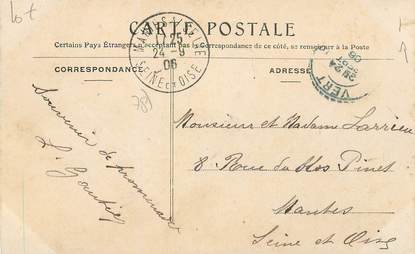 lot
CARTE POSTALE
Certains Pays Étrangers n'acceptent pas la Correspondance de ce côté, se renseigner à la Poste
CORRESPONDANCE
ADRESSE
17 25
24 - 9
06
SEINE ET OISE
VERT
78
Souvenir de promenade
L. Gautier
Monsieur et Madame Larrieu
8 Rue du Clos Pinet
Mantes
Seine et Oise